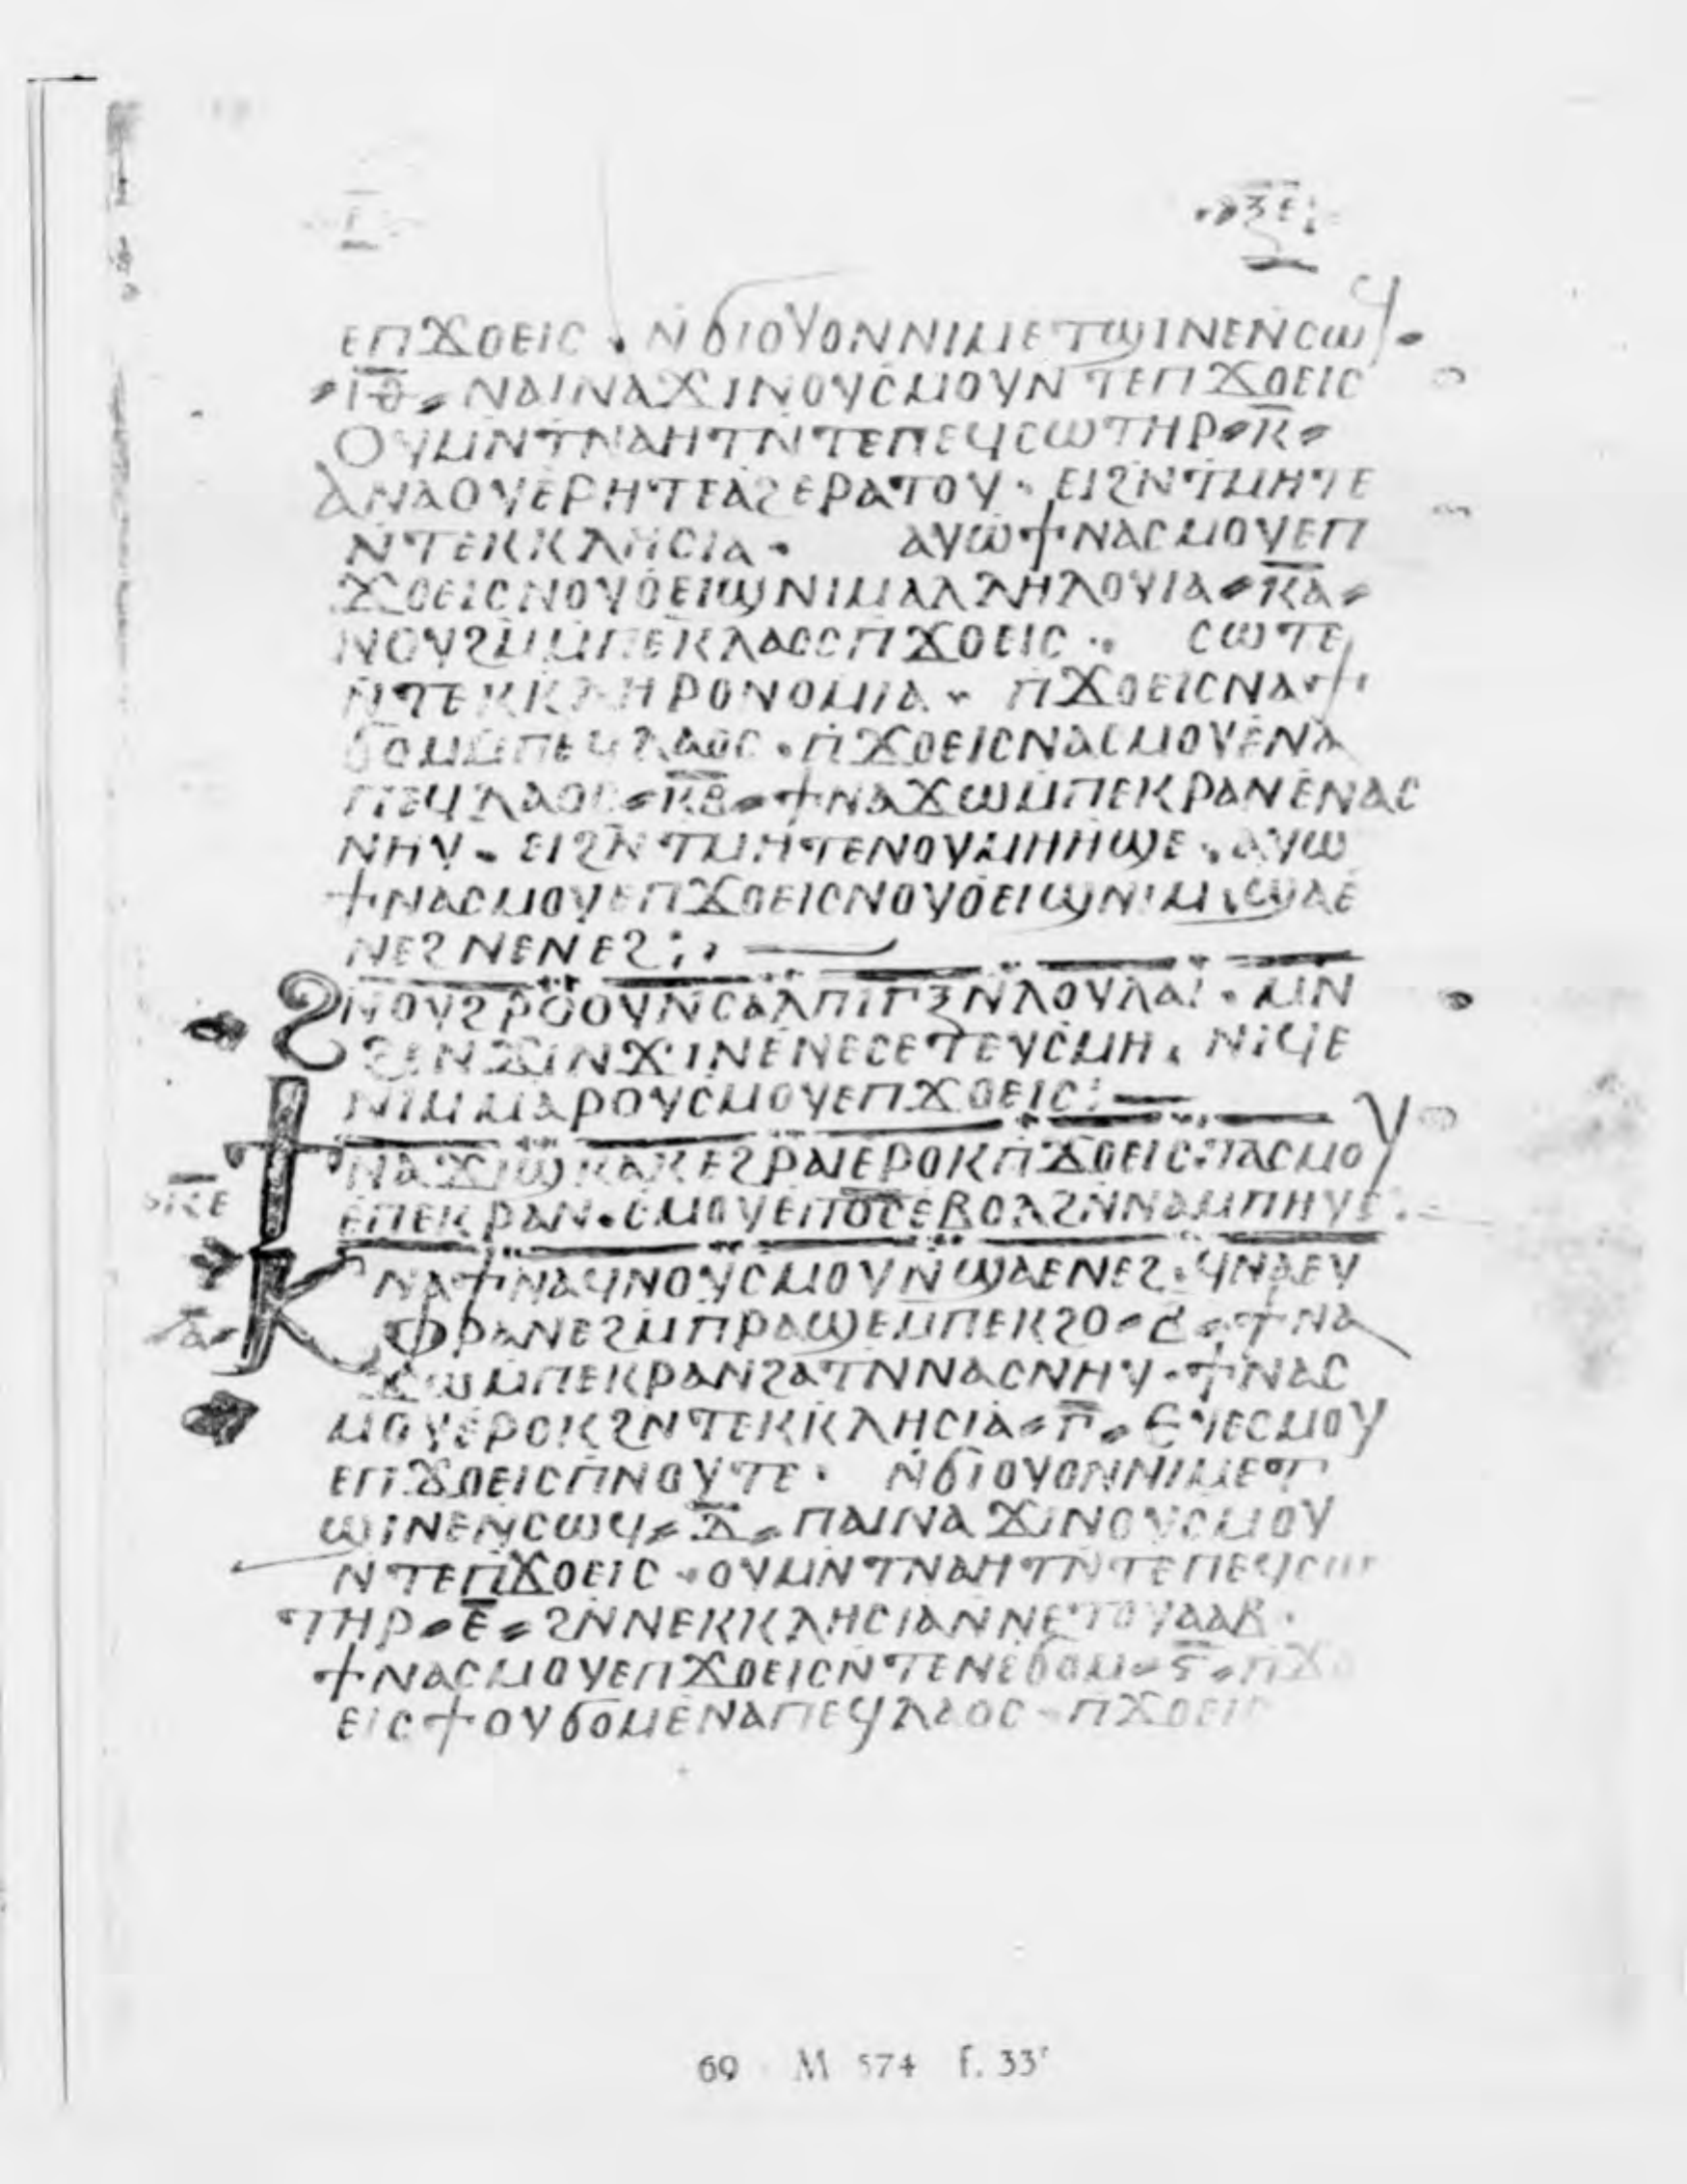 ⲝⲉ
ⲉⲡϫⲟⲉⲓⲥ · ⲛ̇ϭⲓⲟⲩⲟⲛⲛⲓⲙⲉⲧϣⲓⲛⲉⲛ̇ⲥⲱϥ ·
ⲓ̅ⲑ̅ ⲛⲁⲓⲛⲁϫⲓⲛⲟⲩⲥⲙⲟⲩⲛ̇ⲧⲉⲡϫⲟⲉⲓⲥ
ⲟⲩⲙⲛ̇ⲧⲛⲁⲏⲧⲛ̇ⲧⲉⲡⲉϥⲥⲱⲧⲏⲣ ⲕ̅
ⲁⲛⲁⲟⲩⲉ̇ⲣⲏⲧⲉⲁ̇ϩⲉⲣⲁⲧⲟⲩ · ⲉⲓϩⲛ̇ⲧⲙⲏⲧⲉ
ⲛ̇ⲧⲉⲕⲕⲗⲏⲥⲓⲁ · ⲁⲩⲱϯⲛⲁⲥⲙⲟⲩⲉⲡ
ϫⲟⲉⲓⲥⲛⲟⲩⲟ̇ⲉⲓϣⲛⲓⲙⲁⲗⲗⲏⲗⲟⲩⲓⲁ ⲕ̅ⲁ̅
ⲛⲟⲩϩⲙ̇ⲙ̇ⲡⲉⲕⲗⲁⲟⲥⲡ̇ϫⲟⲉⲓⲥ · ⲥⲱⲧⲉ
ⲛ̇ⲧⲉⲕⲕⲗⲏⲣⲟⲛⲟⲙⲓⲁ · ⲡ̇ϫⲟⲉⲓⲥⲛⲁϯ
ϭⲟⲙⲙ̇ⲡⲉϥⲗⲁⲟⲥ · ⲡ̇ϫⲟⲉⲓⲥⲛⲁⲥⲙⲟⲩⲉ̇ⲛⲁ
ⲡⲉϥⲗⲁⲟⲥ ⲕ̅ⲃ̅ ϯⲛⲁϫⲱⲙ̇ⲡⲉⲕⲣⲁⲛⲉ̇ⲛⲁⲥ
ⲛⲏⲩ · ⲉⲓϩⲛ̇ⲧⲙⲏⲧⲉⲛⲟⲩⲙⲏⲏϣⲉ · ⲁⲩⲱ
ϯⲛⲁⲥⲙⲟⲩⲉⲡϫⲟⲉⲓⲥⲛⲟⲩⲟ̇ⲉⲓϣⲛⲓⲙ · ϣⲁⲉ̇
ⲛⲉϩⲛⲉⲛⲉϩ :
ϩⲛⲟⲩϩⲣⲟⲟⲩⲛ̇ⲥⲁⲗⲡⲓⲅⲝⲛ̇ⲗⲟⲩⲗⲁⲓ · ⲙⲛ
ϩⲉⲛϫⲓⲛϫⲓⲛⲉ̇ⲛⲉⲥⲉⲧⲉⲩⲥⲙⲏ · ⲛⲓϥⲉ
ⲛⲓⲙⲙⲁⲣⲟⲩⲥⲙⲟⲩⲉⲡϫⲟⲉⲓⲥ :
ϯⲛⲁϫⲓϣⲕⲁⲕⲉϩⲣⲁⲓⲉⲣⲟⲕⲡ̇ϫⲟⲉⲓⲥ · ⲡⲁⲥⲙⲟⲩ
ⲕ̅ⲉ̅ ⲉ̇ⲡⲉⲕⲣⲁⲛ · ⲥⲙⲟⲩⲉ̇ⲡⲟ̅ⲥ̅ⲉ̇ⲃⲟⲗϩⲛ̇ⲛⲁⲙⲡⲏⲩⲉ :
ⲕⲛⲁϯⲛⲁϥⲛⲟⲩⲥⲙⲟⲩⲛ̇ϣⲁⲉⲛⲉϩ · ϥⲛⲁⲉⲩ
ⲁ̅ ⲫⲣⲁⲛⲉϩⲙ̇ⲡⲣⲁϣⲉⲙ̇ⲡⲉⲕϩⲟ ⲃ̅ ϯⲛⲁ
ϫⲱⲙ̇ⲡⲉⲕⲣⲁⲛϩⲁⲧⲛ̇ⲛⲁⲥⲛⲏⲩ · ϯⲛⲁⲥ
ⲙⲟⲩⲉ̇ⲣⲟⲕϩⲛ̇ⲧⲉⲕⲕⲗⲏⲥⲓⲁ ⲅ̅ ⲉϥⲉⲥⲙⲟⲩ
ⲉⲡϫⲟⲉⲓⲥⲡ̇ⲛⲟⲩⲧⲉ · ⲛ̇ϭⲓⲟⲩⲟⲛⲛⲓⲙⲉⲧ
ϣⲓⲛⲉⲛ̇ⲥⲱϥ ⲇ̅ ⲡⲁⲓⲛⲁϫⲓⲛⲟⲩⲥⲙⲟⲩ
ⲛ̇ⲧⲉⲡϫⲟⲉⲓⲥ · ⲟⲩⲙⲛ̇ⲧⲛⲁⲏⲧⲛ̇ⲧⲉⲡⲉϥⲥⲱ
ⲧⲏⲣ ⲉ̅ ϩⲛ̇ⲛⲉⲕⲕⲗⲏⲥⲓⲁⲛ̇ⲛⲉⲧⲟⲩⲁⲁⲃ ·
ϯⲛⲁⲥⲙⲟⲩⲉⲡϫⲟⲉⲓⲥⲛ̇ⲧⲉⲛⲉϭⲟⲙ ⲋ̅ ⲡ̇ϫⲟ
ⲉⲓⲥϯⲟⲩϭⲟⲙⲉ̇ⲛⲁⲡⲉϥⲗⲁⲟⲥ · ⲡ̇ϫⲟⲉⲓⲥ
69 M 574 f. 33r